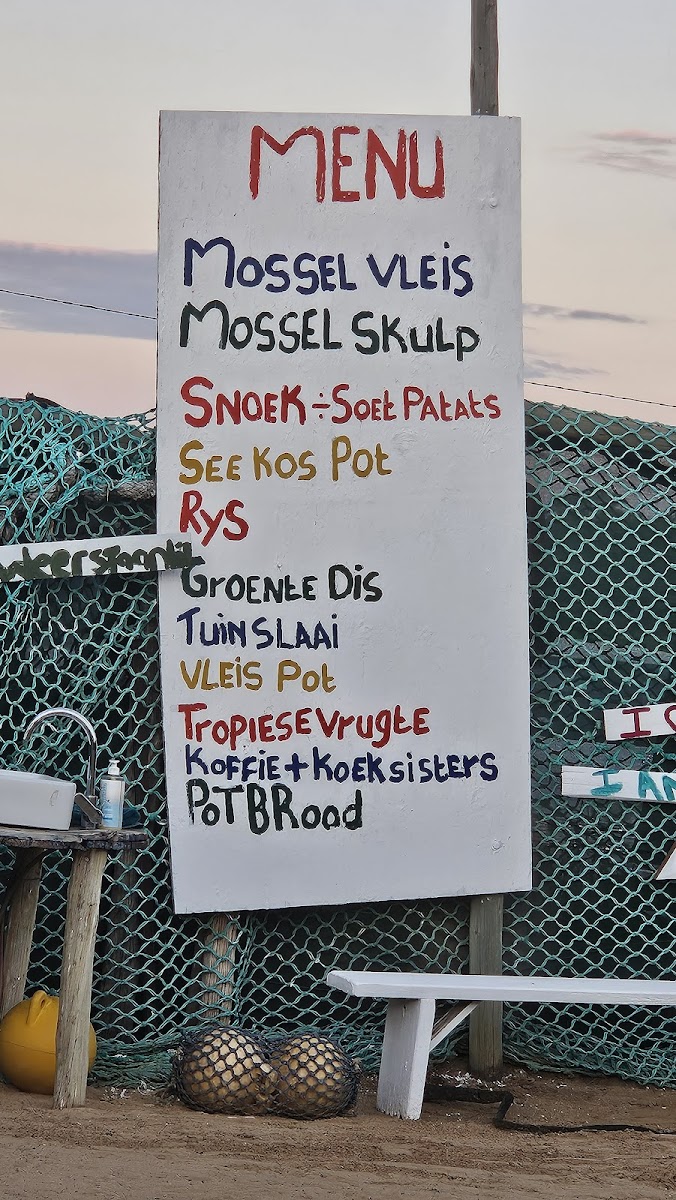 MENU
MOSSEL VLEIS
MOSSEL SKULP
SNOEK ÷ SOEt PAtAts
SEE KOS Pot
RyS
GROENtE DiS
TUiN SLAAi
VLEiS Pot
TROPiESE VRUgtE
KOFFiE + KOEKsistERS
PoT BRood
I
I AM